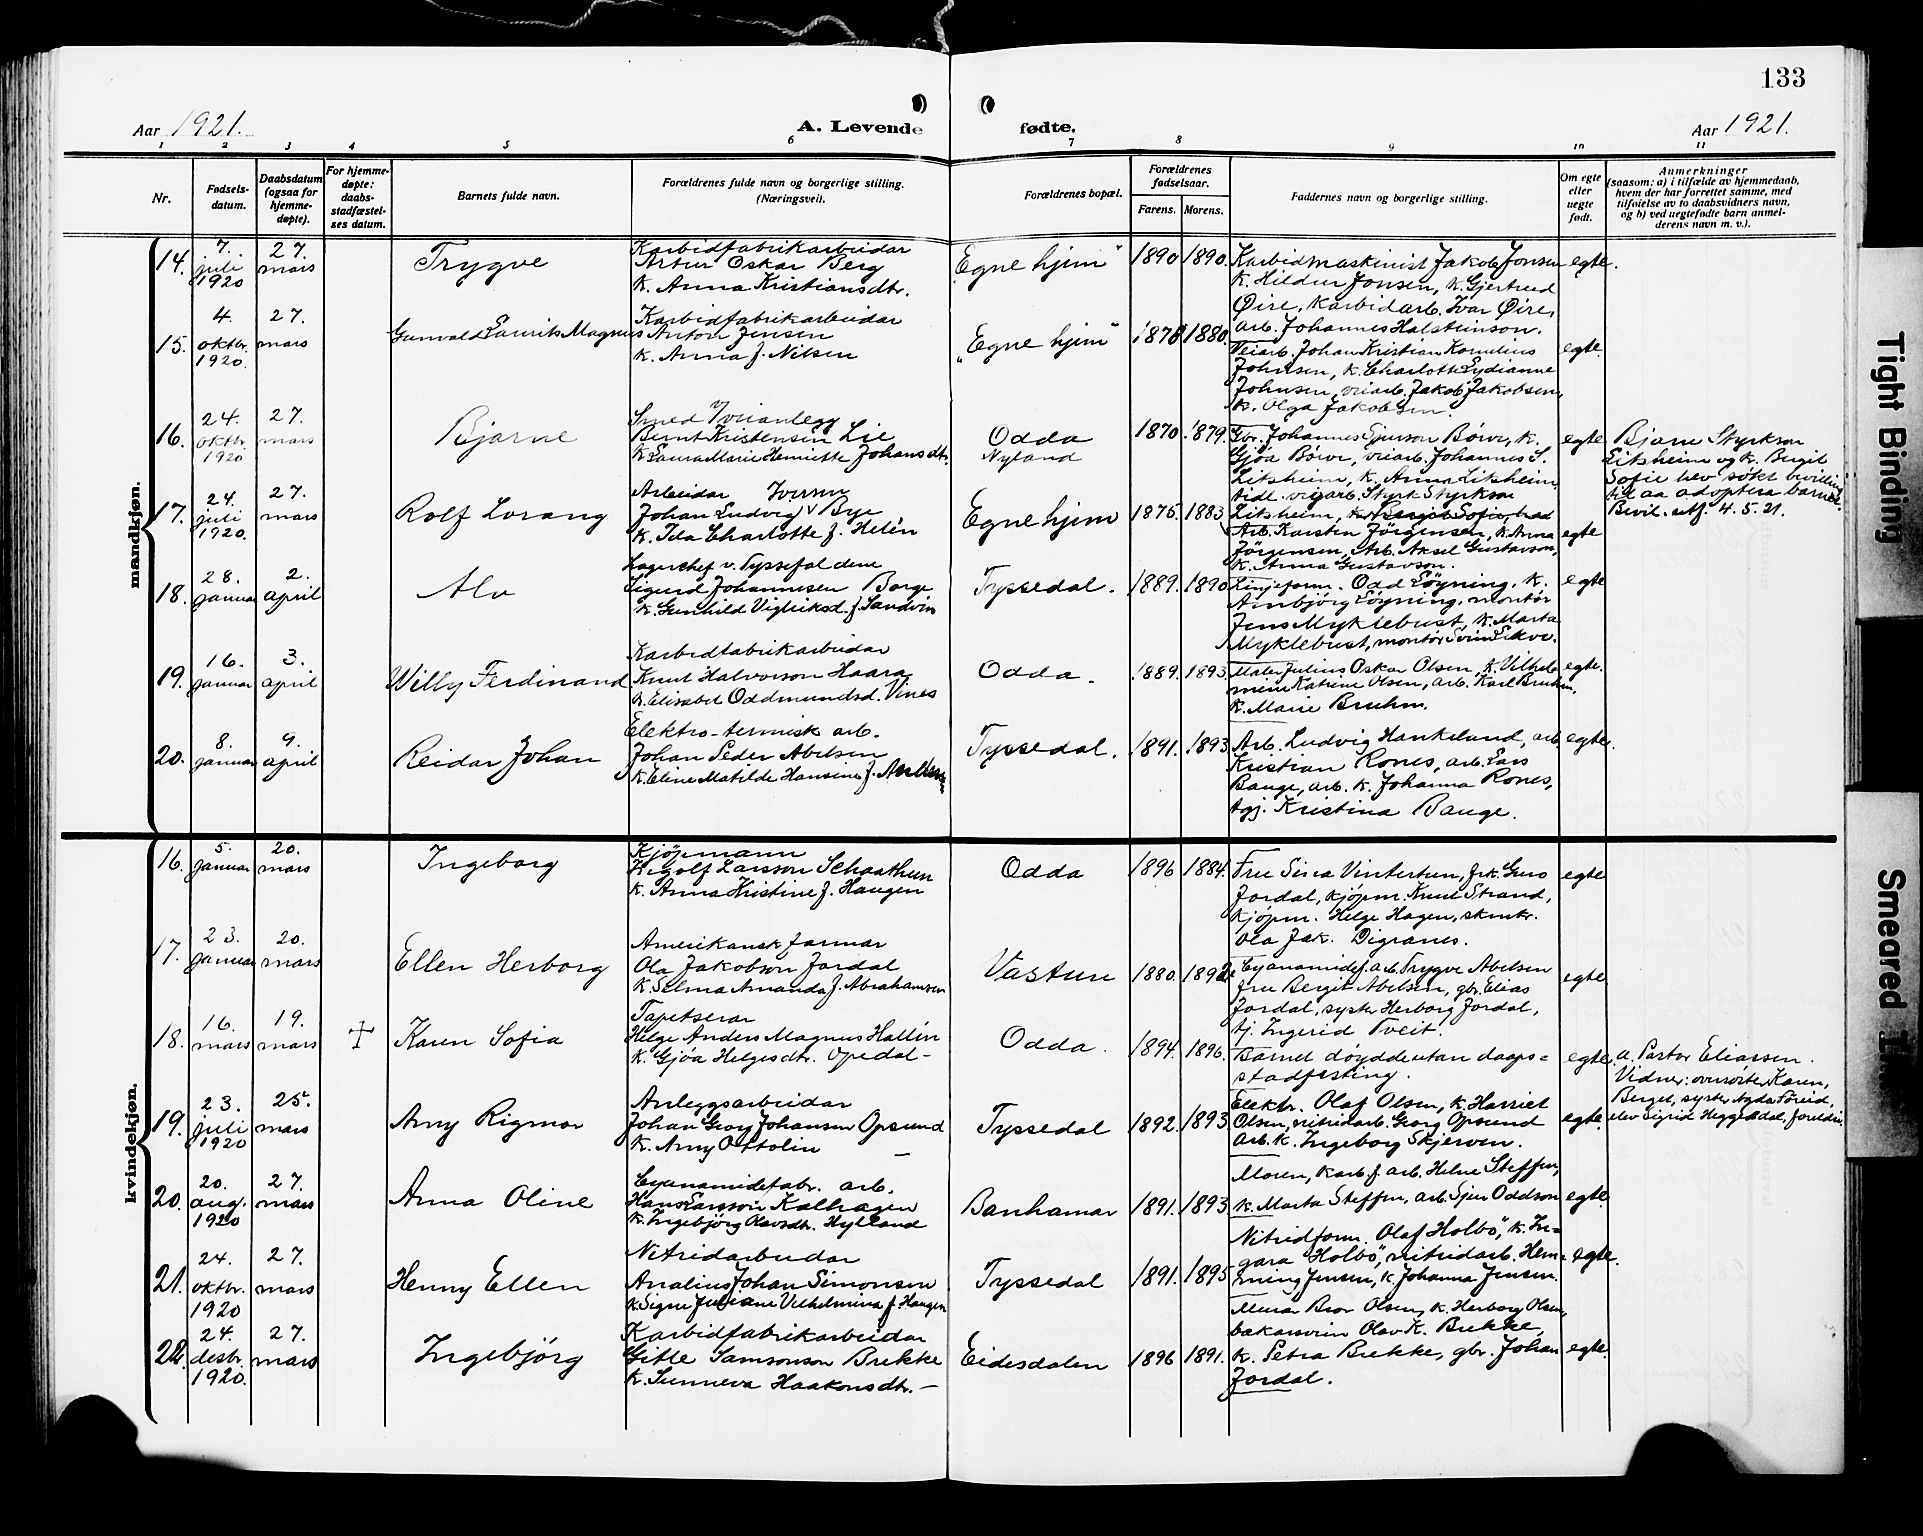 133
Aar 1921.
A. Levende fødte.
Aar 1921.
1 2 3 4 5 6 7 8 9 10 11
Nr.
Fødsels-
datum.
Daabsdatum
(ogsaa for
hjemme-
døpte).
For hjemme-
døpte:
daabs-
stadfæstel-
ses datum.
Barnets fulde navn.
Forældrenes fulde navn og borgerlige stilling.
(Næringsvei).
Forældrenes bopæl.
Forældrenes
fødselsaar.
Farens. Morens.
Faddernes navn og borgerlige stilling.
Om egte
eller
uegte
født.
Anmerkninger
(saasom: a) i tilfælde av hjemmedaab,
hvem der har forrettet samme, med
tilføielse av to daabsvidners navn,
og b) ved uegtefødte barn anmel-
derens navn m. v.).
mandkjøn.
14.
7.
juli
1920
27.
mars
Trygve
Karbidfabrikarbeidar
Artur Oskar Berg
k. Anna Kristiansdtr.
"Egne hjim"
1890 1890.
Karbidmaskinist Jakob Jonsen
k. Hildur Jonsen, k. Gjertrud
Øire, karbidarb. Ivar Øire,
arb. Johannes Halsteinson.
egte.
15.
4.
oktbr.
1920.
27.
mars
Gunvald Laurits Magnus
Karbidfabrikarbeidar
Anton Jensen
k. Anna f. Nilsen
"Egne hjim"
1878 1880.
Veiarb. Johan Kristian Kornelius
Johnsen, k. Charlotte Lydianne
Johnsen, veiarb. Jakob Jakobsen,
k. Olga Jakobsen.
egte.
16.
24.
oktbr.
1920
27.
mars
Bjarne
Smed v/veianlegg
Bernt Kristensen Lie
k. Laura Marie Henriette Johansdtr.
Odda
Nyland
1870. 1879.
Gbr. Johannes Sjurson Børve, k.
Gjøa Børve, veiarb. Johannes S.
Eitsheim, k. Anna Eitsheim,
tidl. vegarb. Styrk Styrkson
Eitsheim, k. Bergit Sofie,
egte
Bjarne Styrkson
Eitsheim og k. Bergit
Sofie hev søkt bevilling
til aa adoptera barnet.
Bevil. utf. 4. 5. 21.
17.
24.
juli
1920.
27.
mars
Rolf Lorang
Arbeidar Iversen
Johan Ludvig Bye
k. Ida Charlotte f. Helén
Egne hjim
1875. 1883
Arb. Karsten Jörgensen, k. Anna
Jörgensen, Arb. Aksel Gustavson,
k. Anna Gustavson.
egte
18.
28.
januar
2.
april
Alv
Lagerchef v. Tyssefaldene
Sigurd Johannesen Borge
k. Gunhild Vigleiksd. f. Sandvin
Tyssedal.
1889. 1890
Linjeform. Odd Löyning, k.
Ambjörg Löyning, montör
Jens Myklebust, k. Marta
Myklebust, montör Svein Ekve.
egte
19.
16.
januar
3.
april
Willy Ferdinand
Karbidfabrikarbeidar
Knut Halvorson Haara
k. Elisabet Oddmundsd. Vines
Odda.
1889. 1893
Maler Julius Oskar Olsen, k. Vilhel-
mine Katrine Olsen, arb. Karl Bruhm,
k. Marie Bruhm.
egte.
20.
8.
januar
9.
april
Reidar Johan
Elektro-termisk arb.
Johan Peder Abelsen
k. Eline Matilde Hansine f.
Tyssedal.
1891. 1893
Arb. Ludvig Hankeland, arb.
Kristian Rones, arb. Lars
Bauge, arb. k. Johanna Rones,
tgj. Kristina Bauge.
egte.
kvindekjøn.
16.
5.
januar
20.
mars
Ingeborg
Kjöpmann
Herolf Larsson Schaathun
k. Anna Kristine f. Haugen
Odda
1896 1884.
Fru Sina Vintertun, frk. Guro
Jordal, kjöpm. Knut Strand,
kjöpm. Helge Hagen, skrntr.
Ola Jak. Digranes.
egte
17.
23.
januar
20.
mars
Ellen Herborg
Amerikansk farmar
Ola Jakobson Jordal
k. Selma Amanda f. Abrahamsen
Vastun
1880. 1892.
Cyanamidf. arb. Trygve Abelsen
fru Bergit Abelsen, gbr. Elias
Jordal, syster Herborg Jordal,
tj. Ingerid Tveit.
egte.
18.
16.
mars
19.
mars
Karen Sofia
Tapetserar
Helge Anders Magnus Hallén
k. Gjöa Helgesdtr. Opedal -
Odda.
1894. 1896.
Barnet döydde utan daaps=
stadfesting.
egte.
a. Pastor Eliassen.
Vidner: oversöster Karen,
Berget, syster Agda Föreid,
elev Sigrid Heggedal, foreldra
19.
23.
juli
1920
25.
mars
Amy Rigmor
Anleggsarbeidar
Johan Georg Johansen Opsund
k. Amy Ottolin -
Tyssedal
1892. 1893
Elektr. Olaf Olsen, k. Harriet
Olsen, nitridarb. Georg Opsund
arb. k. Ingeborg Skjerven.
egte.
20.
20.
aug.
1920
27.
mars
Anna Oline
Cyanamidefabr. arb.
Hans Larsson Kalhagen
k. Ingebjörg Olavsdtr. Hylland
Banhamar
1891. 1893
Moren, karb. f. arb. Helne Steffen,
k. Marta Steffen, arb. Sjur Oddson
egte.
21.
24.
oktbr.
1920
27.
mars
Henny Ellen
Nitridarbeidar
Analius Johan Simonsen
k. Signe Juliane Vilhelmina f. Haugen
Tyssedal
1891. 1895
Nitridform. Olaf Holbö, k. In-
gara Holbö, nitridarb. Hem-
ming Jensen, k. Johanna Jensen.
egte.
22.
24.
desbr.
1920.
27.
mars
Ingebjörg
Karbidfabrikarbeidar
Gitle Samsonson Brekke
k. Sunneva Haakonsdtr. -
Eidesdalen
1896 1891.
Murar Bror Olsen, k. Herborg Olsen,
bakarsvein Olav K. Brekke,
k. Petra Brekke, gbr. Johan
Jordal.
egte.
Tight Binding
Smeared